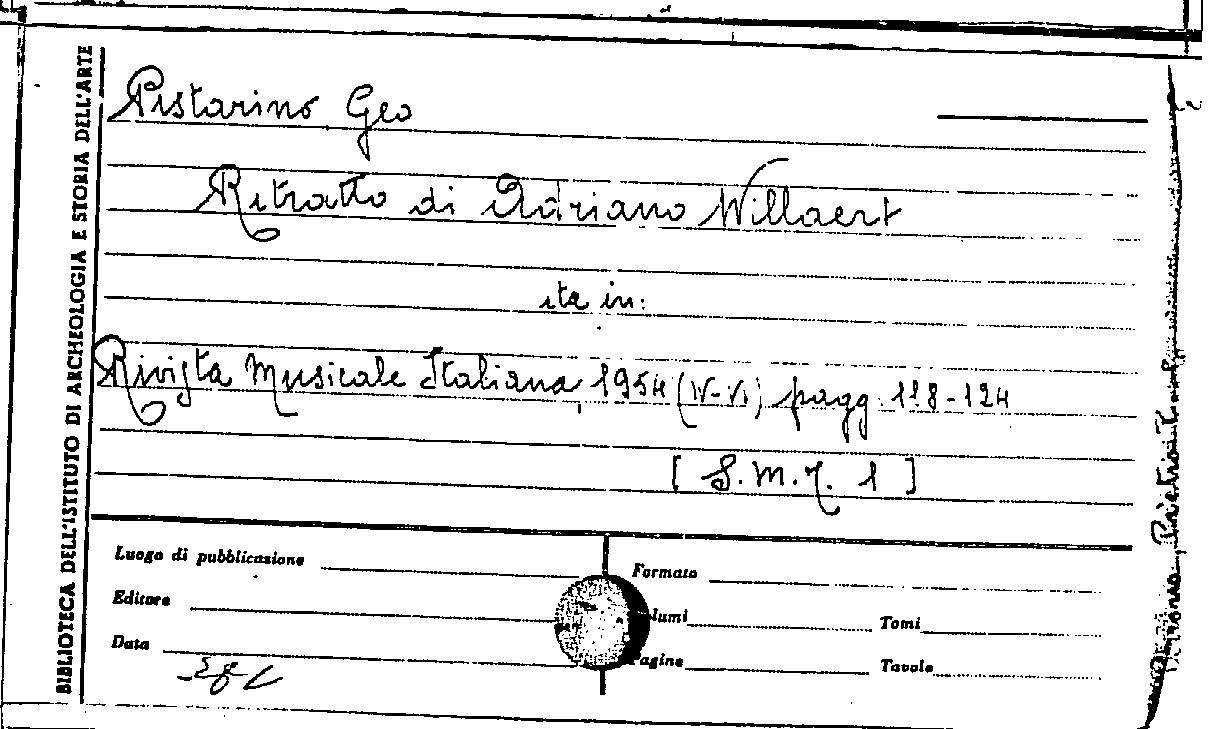 BIBLIOTECA DELL'ISTITUTO DI ARCHEOLOGIA E STORIA DELL'ARTE
Pistarino Geo
Ritratto di Adriano Willaert
sta in:
Rivista Musicale Italiana, 1954 (IV-VI) pagg. 118-124
[S.M.I. 1]
Luogo di pubblicazione
Formato
Editore
lumi
Tomi
Data
Pagine
Tavole